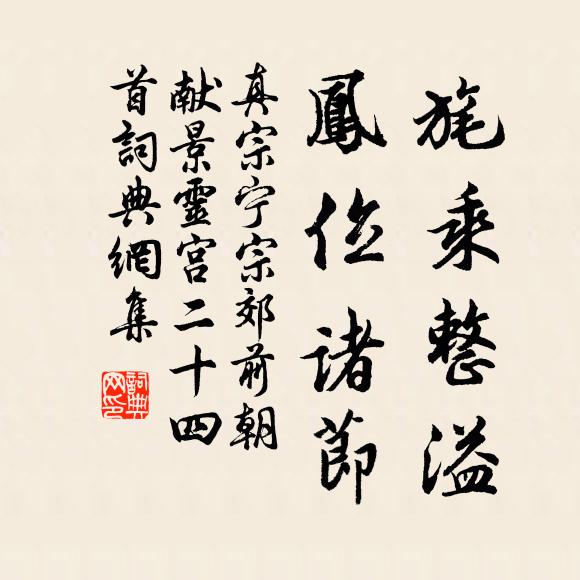 旄乘整溢
鳳位諸節
真宗宁宗郊前朝
献景靈宫二十四
首詞典網集
詞典
网印